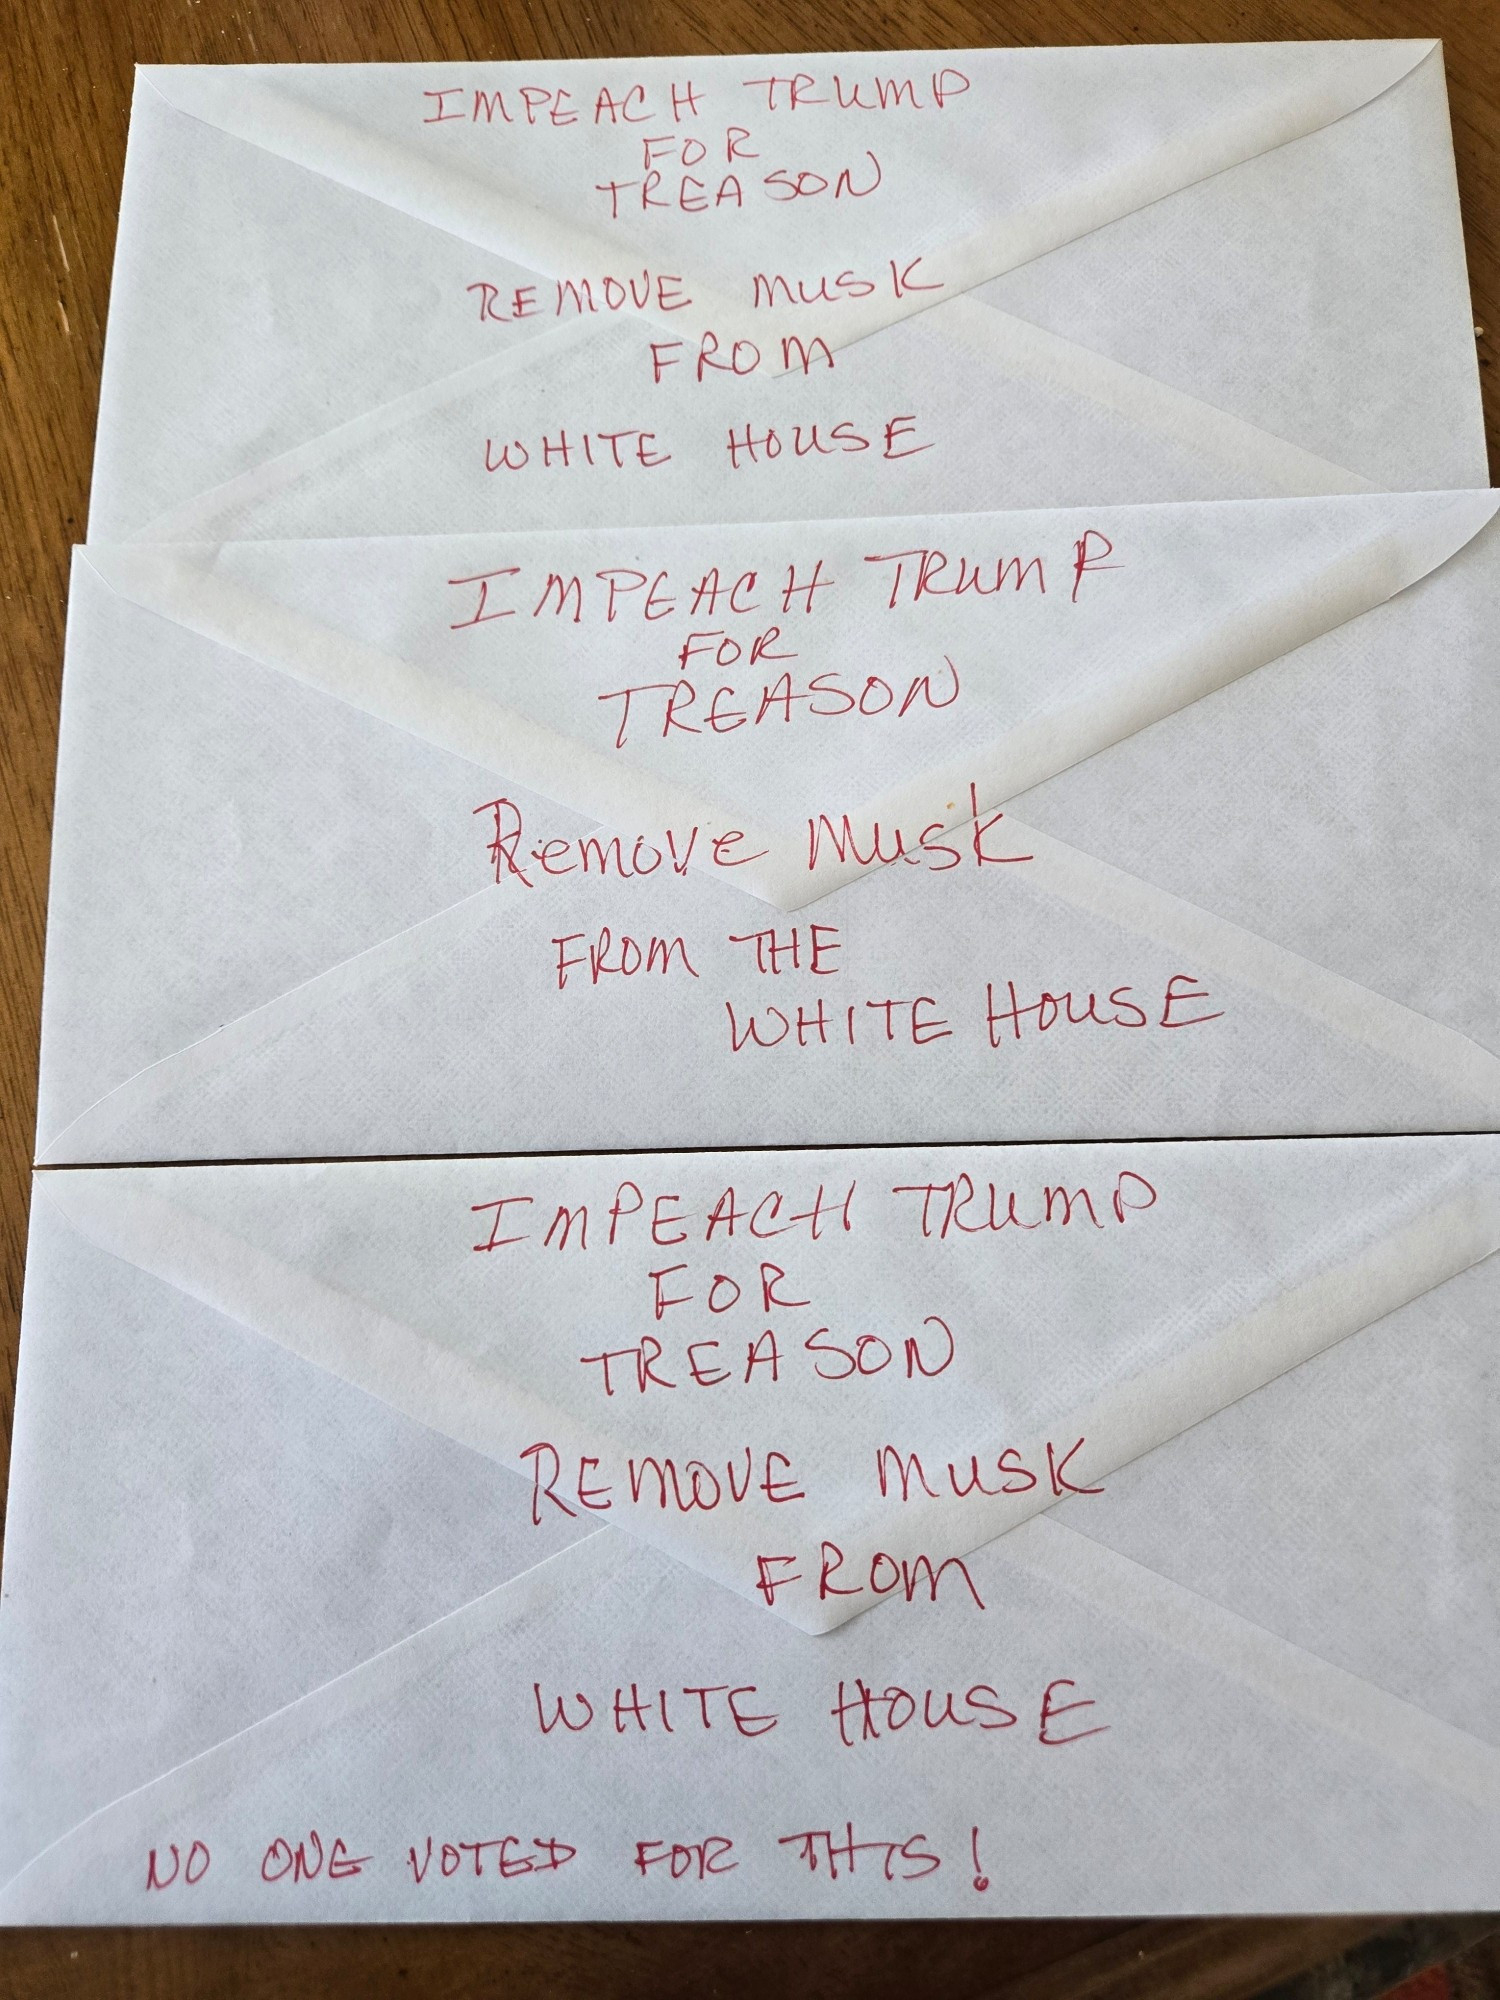 IMPEACH TRUMP
FOR
TREASON
REMOVE MUSK
FROM
WHITE HOUSE
IMPEACH TRUMP
FOR
TREASON
Remove Musk
FROM THE
WHITE HOUSE
IMPEACH TRUMP
FOR
TREASON
REMOVE MUSK
FROM
WHITE HOUSE
NO ONE VOTED FOR THIS!